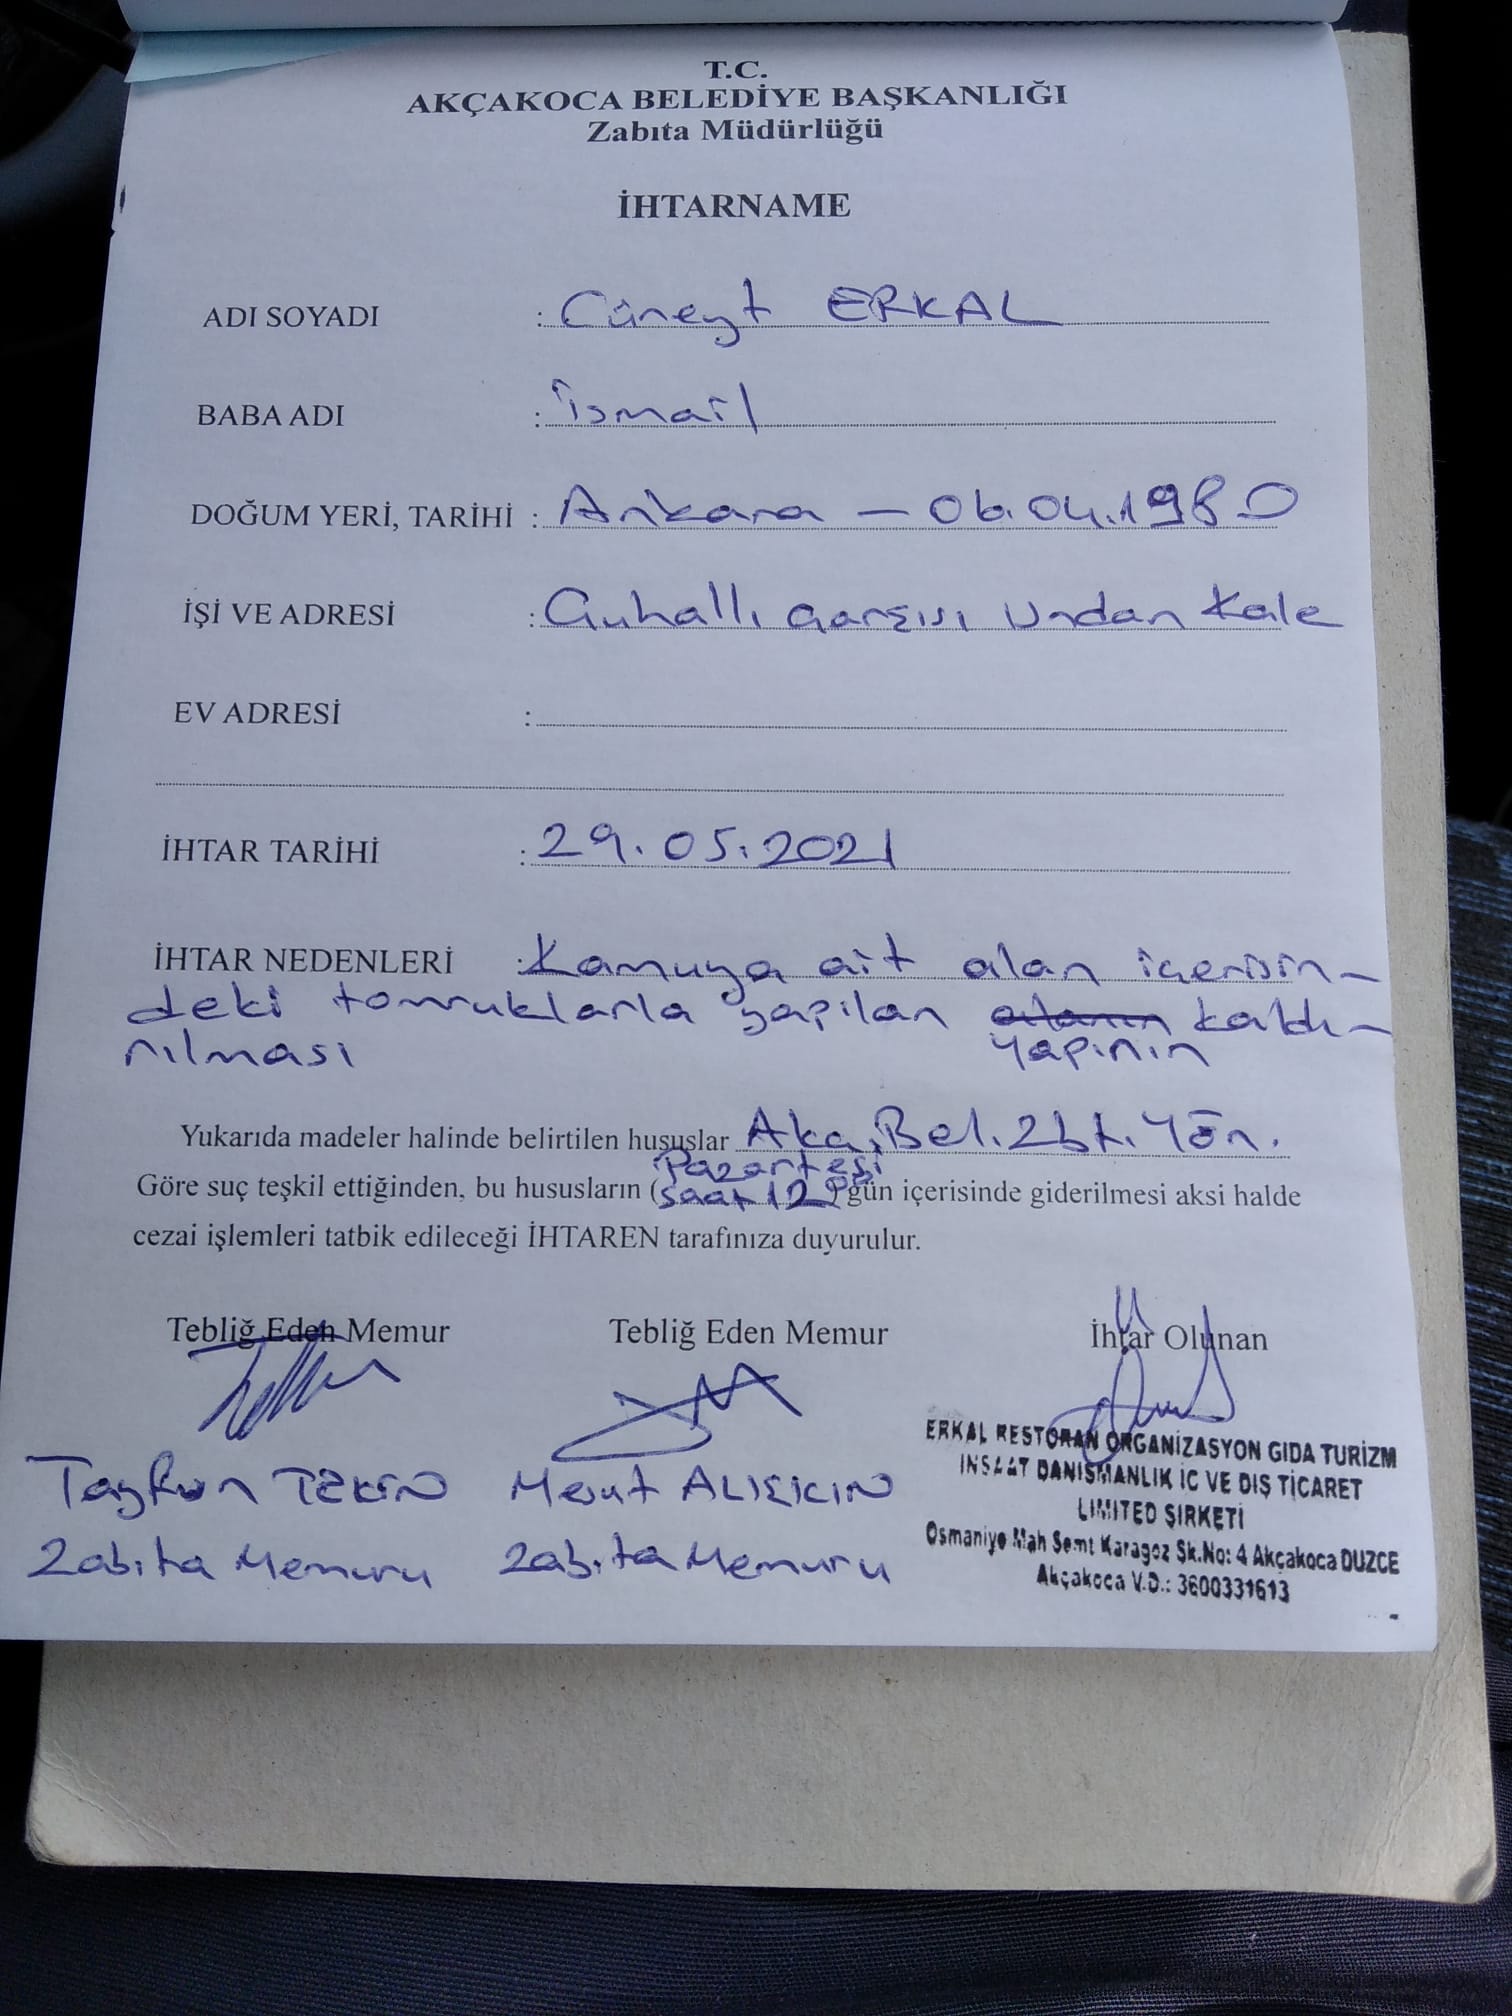 T.C.
AKÇAKOCA BELEDİYE BAŞKANLIĞI
Zabıta Müdürlüğü
İHTARNAME
ADI SOYADI : Cüneyt ERKAL
BABA ADI : İsmail
DOĞUM YERİ, TARİHİ : Ankara – 06.04.1980
İŞİ VE ADRESİ : Çuhallı Çarşısı Kale
EV ADRESİ :
İHTAR TARİHİ : 29.05.2021
İHTAR NEDENLERİ : Kamuya ait alan içerisin-
deki tomruklarla yapılan alanın kaldı-
yapının
rılması
Yukarıda madeler halinde belirtilen hususlar Akç. Bel. Zbt. Yön.
Pazartesi
Göre suç teşkil ettiğinden, bu hususların (saat 12) gün içerisinde giderilmesi aksi halde
cezai işlemleri tatbik edileceği İHTAREN tarafınıza duyurulur.
Tebliğ Eden Memur Tebliğ Eden Memur İhtar Olunan
ERKAL RESTORAN ORGANİZASYON GIDA TURİZM
INSAAT DANIŞMANLIK İC VE DIŞ TİCARET
LIMITED SIRKETİ
Osmaniye Mah Semt Karagoz Sk.No: 4 Akçakoca DUZCE
Akçakoca V.D.: 3600331613
Tayfun TEKİN Mesut
Zabıta Memuru Zabıta Memuru